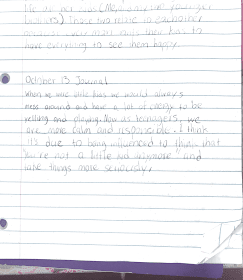 brothers) These two relate to eachother
have everything to see them happy.
October 13 Journal
when we were little kids we would always
mess around and have a lot of energy to be
yelling and playing. Now as teenagers, we
are more calm and responsible. I think
it's due to being influenced to think that
you're not a little kid anymore and
take things more seriously.